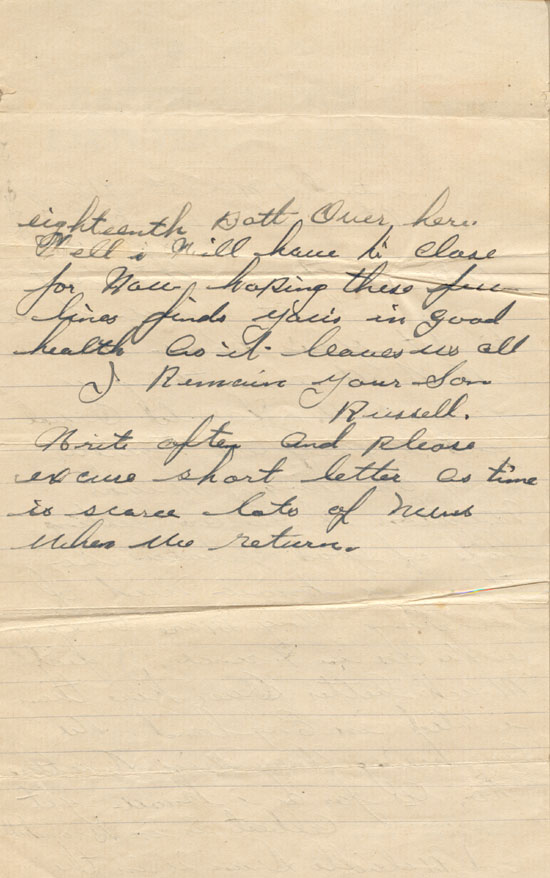 eighteenth Batt Over here.
Well i Will have to close
for Now hoping these few
lines finds you's in good
health as it leaves us all
I Remain your Son
Russell.
Write often and please
excuse short letter as time
is scarce lots of News
When we return.